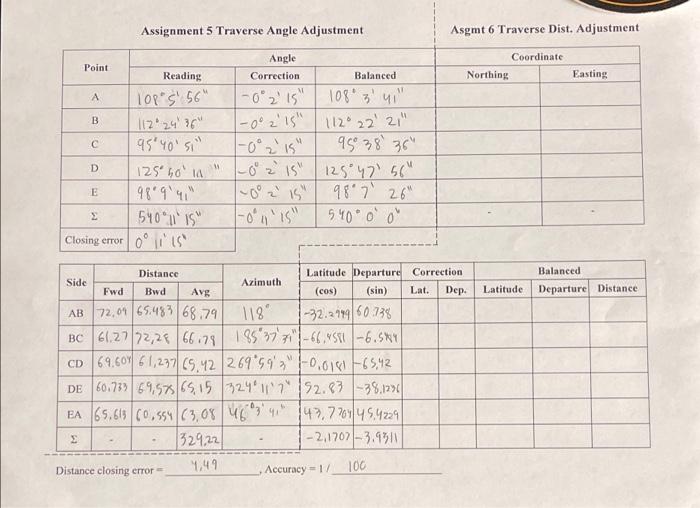 Assignment 5 Traverse Angle Adjustment Asgmt 6 Traverse Dist. Adjustment
Point Angle Coordinate
Reading Correction Balanced Northing Easting
A 108° 5' 56" -0° 2' 15" 108° 3' 41"
B 112° 24' 36" -0° 2' 15" 112° 22' 21"
C 95° 40' 51" -0° 2' 15" 95° 38' 36"
D 125° 50' 11" -0° 2' 15" 125° 47' 56"
E 98° 9' 41" -0° 2' 15" 98° 7' 26"
Σ 540° 11' 15" -0° 11' 15" 540° 0' 0" - -
Closing error 0° 11' 15"
Side Distance Azimuth Latitude Departure Correction Balanced
Fwd Bwd Avg (cos) (sin) Lat. Dep. Latitude Departure Distance
AB 72,09 65.483 68,79 118° -32.2949 60.738
BC 61,27 72,28 66.78 185° 37' -66,4581
CD 69,604 61,237 65,42 269° 59' 3" -0,0181 -65,42
DE 60,733 69,575 65,15 324° 11' 7" 52.83 -38,1236
EA 65,613 60,554 63,08 46° 3' 41" 43,7764 45,4229
Σ - - 329,22 - -2,1707 -3,9311
Distance closing error = 4,49 , Accuracy = 1 / 100